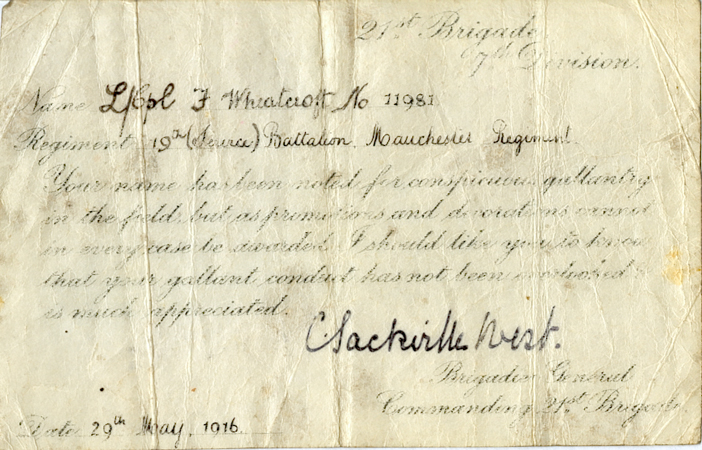 21st Brigade
7th Division.
Name L/Cpl F Wheatcroft No 11981
Regiment 19th (Service) Battalion, Manchester Regiment.
Your name has been noted for conspicuous gallantry
in the field, but as promotions and decorations cannot
in every case be awarded, I should like you to know
that your gallant conduct has not been overlooked &
is much appreciated.
C Sackville West.
Brigadier General
Commanding 21st Brigade.
Date 29th May, 1916.